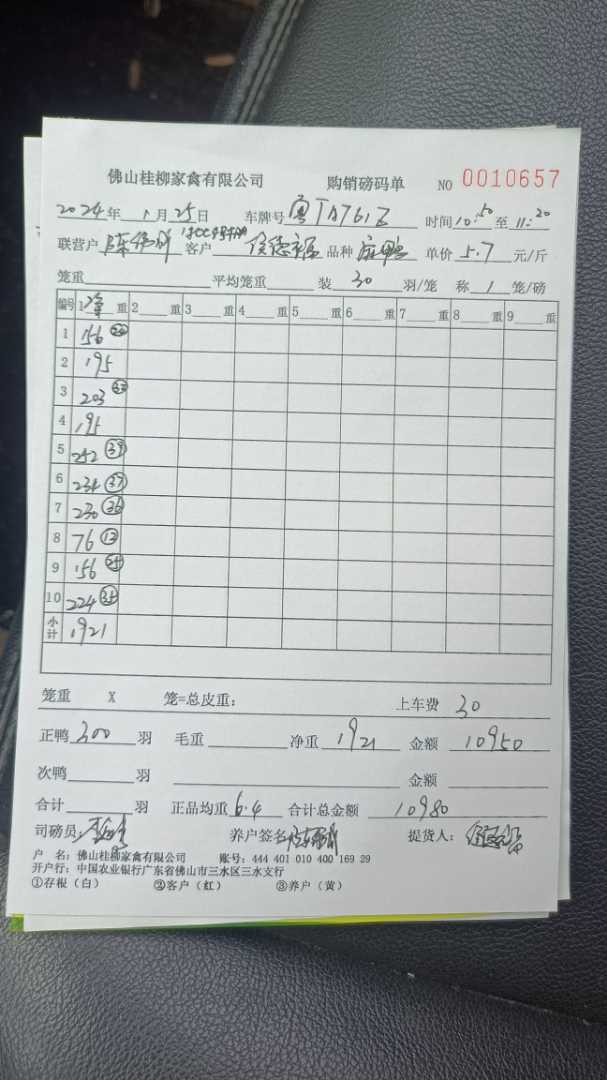 佛山桂柳家禽有限公司 购销磅码单 NO 0010657
2024年 1月 25日 车牌号 时间 10:50 至 11:20
联营户 陈 客户 侯德福 品种 麻鸭 单价 5.7 元/斤
笼重 平均笼重 装 30 羽/笼 称 1 笼/磅
编号 1 重 2 重 3 重 4 重 5 重 6 重 7 重 8 重 9 重
1 156
2 195
3 203
4 195
5 252 39
6 234 37
7 230 36
8 76 12
9 156 25
10 224 35
小计 1921
笼重 X 笼=总皮重: 上车费 30
正鸭 300 羽 毛重 净重 1921 金额 10950
次鸭 羽 金额
合计 羽 正品均重 6.4 合计总金额 10980
司磅员: 养户签名 提货人:
户 名: 佛山桂柳家禽有限公司 账号: 444 401 010 400 169 29
开户行: 中国农业银行广东省佛山市三水区三水支行
①存根（白） ②客户（红） ③养户（黄）